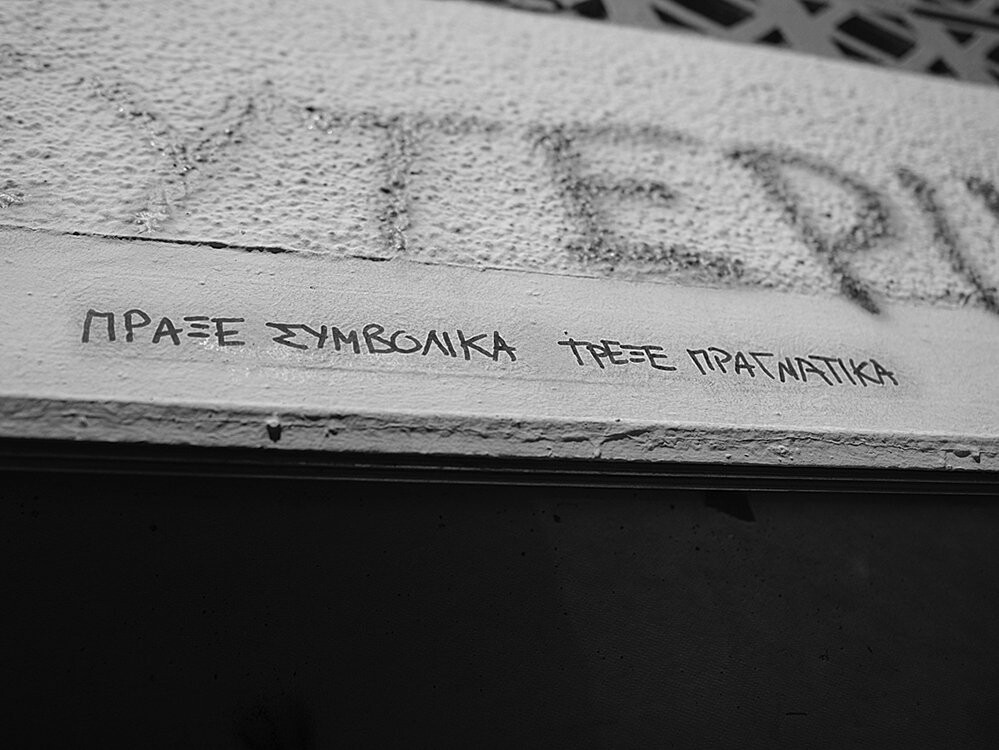 ΠΡΑΞΕ ΣΥΜΒΟΛΙΚΑ ΤΡΕΞΕ ΠΡΑΓΜΑΤΙΚΑ